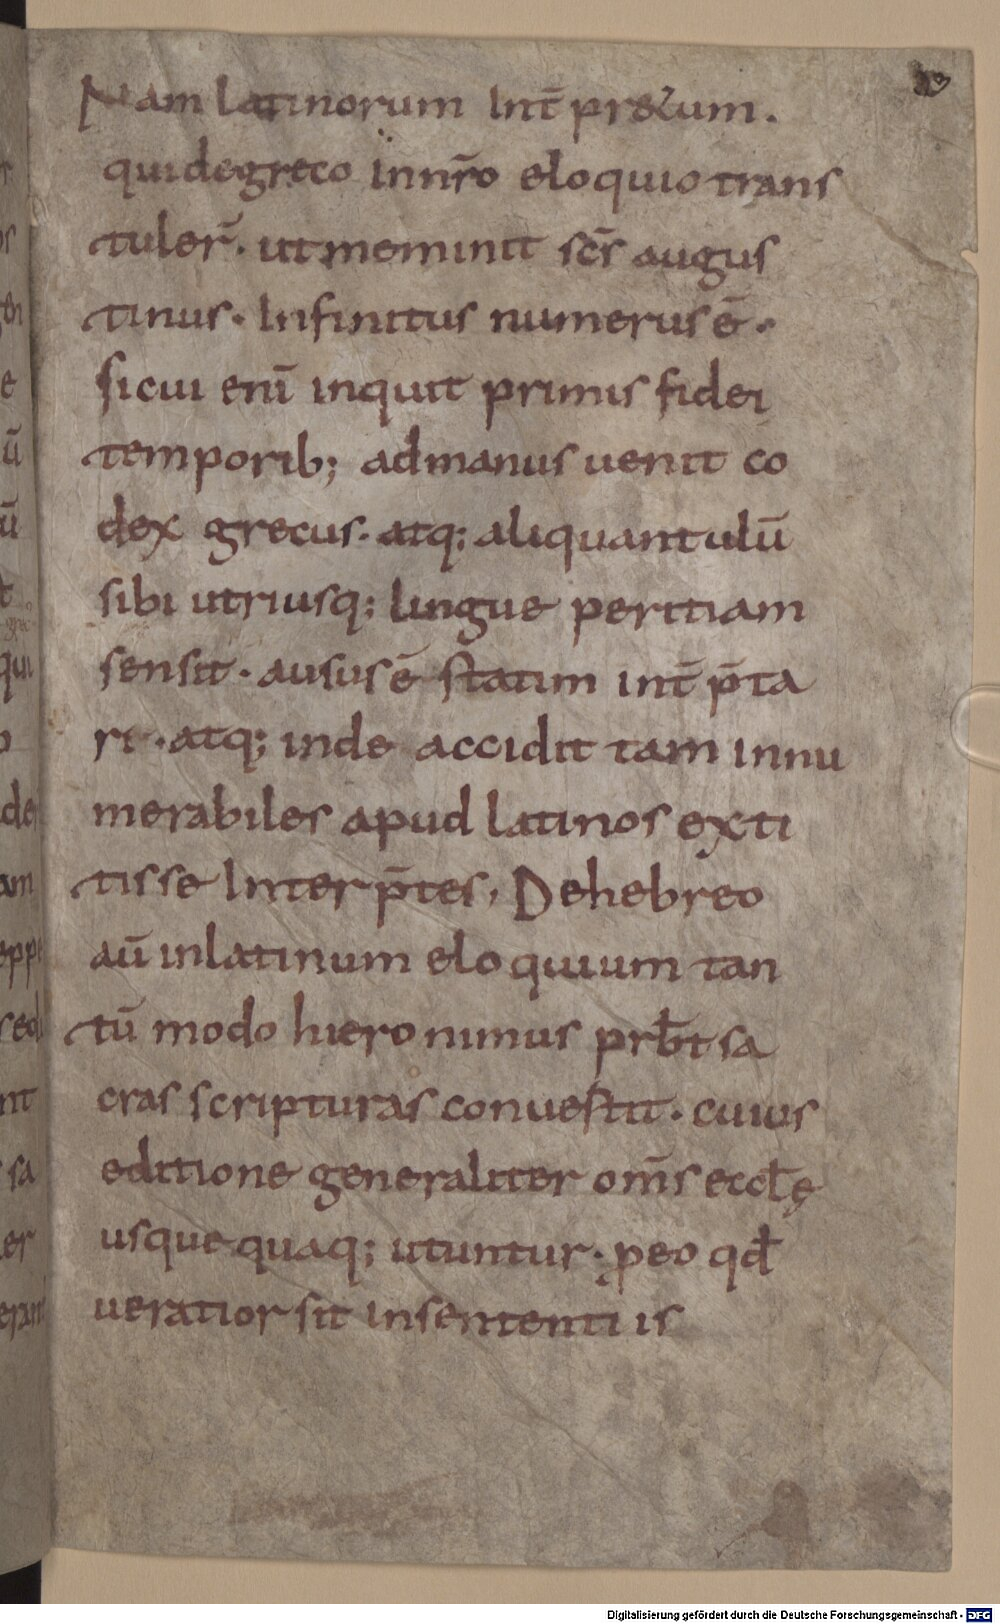 Nam latinorum Int̄pr&um.
qui degreco innr̄o eloquio trans
tuler̄. ut meminit sc̄s augus
tinus. Infinitus numerus ē.
sicui eni̅ inquit primis fidei
temporib; admanus uenit co
dex grecus. atq; aliquantulū
sibi utriusq; lingue peritiam
sensit. ausus ē statim int̄p̄ta
ri. atq; inde accidit tam innu
merabiles apud latinos exti
tisse Interp̄tes, Dehebreo
aū inlatinum eloquium tan
tū modo hieronimus prb̄t sa
cras scripturas conuestit. cuius
editione generaliter om̄s eccl̄ę
usque quaq; utuntur. ꝓeo qd̄
ueratior sit insententiis
Digitalisierung gefördert durch die Deutsche Forschungsgemeinschaft - DFG